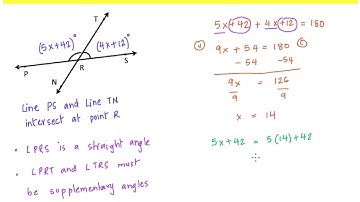 T
(5x+42)°
(4x+12)°
P
R
S
N
Line PS and Line TN
intersect at point R
• ∠PRS is a straight angle
• ∠PRT and ∠TRS must
be supplementary angles
5x+42 + 4x+12 = 180
9x + 54 = 180
-54 -54
9x = 126
9 9
x = 14
5x+42 = 5(14)+42